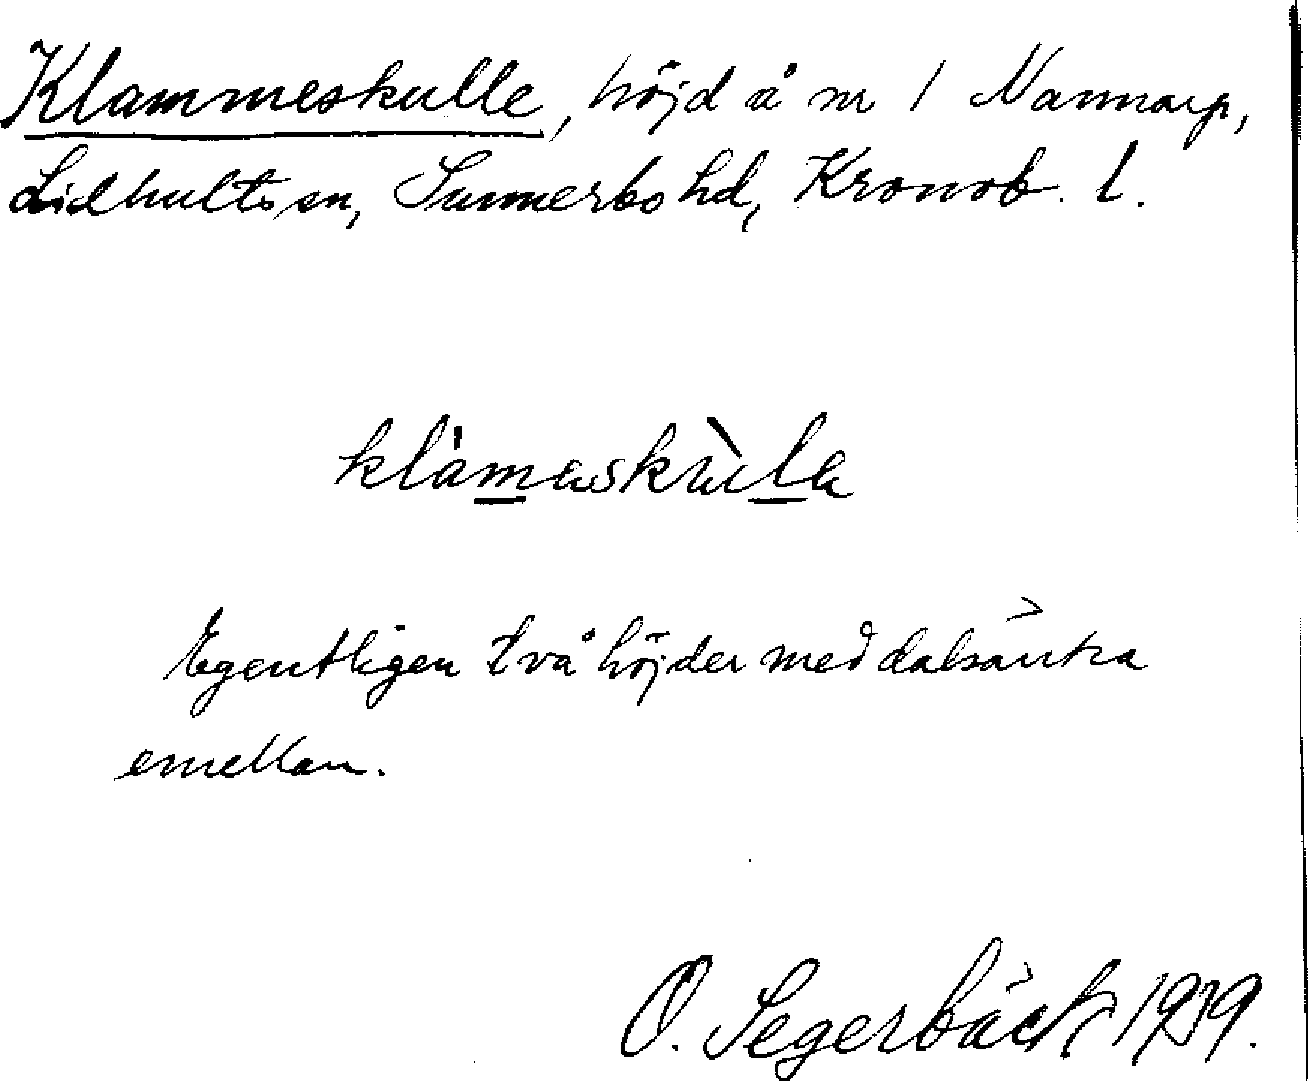 Klammeskulle, höjd å nr 1 Nannarp,
Lidhults sn, Sunnerbo hd, Kronob. l.
klamaskula
Egentligen två höjder med dalsänka
emellan.
O. Segerbäck 1919.